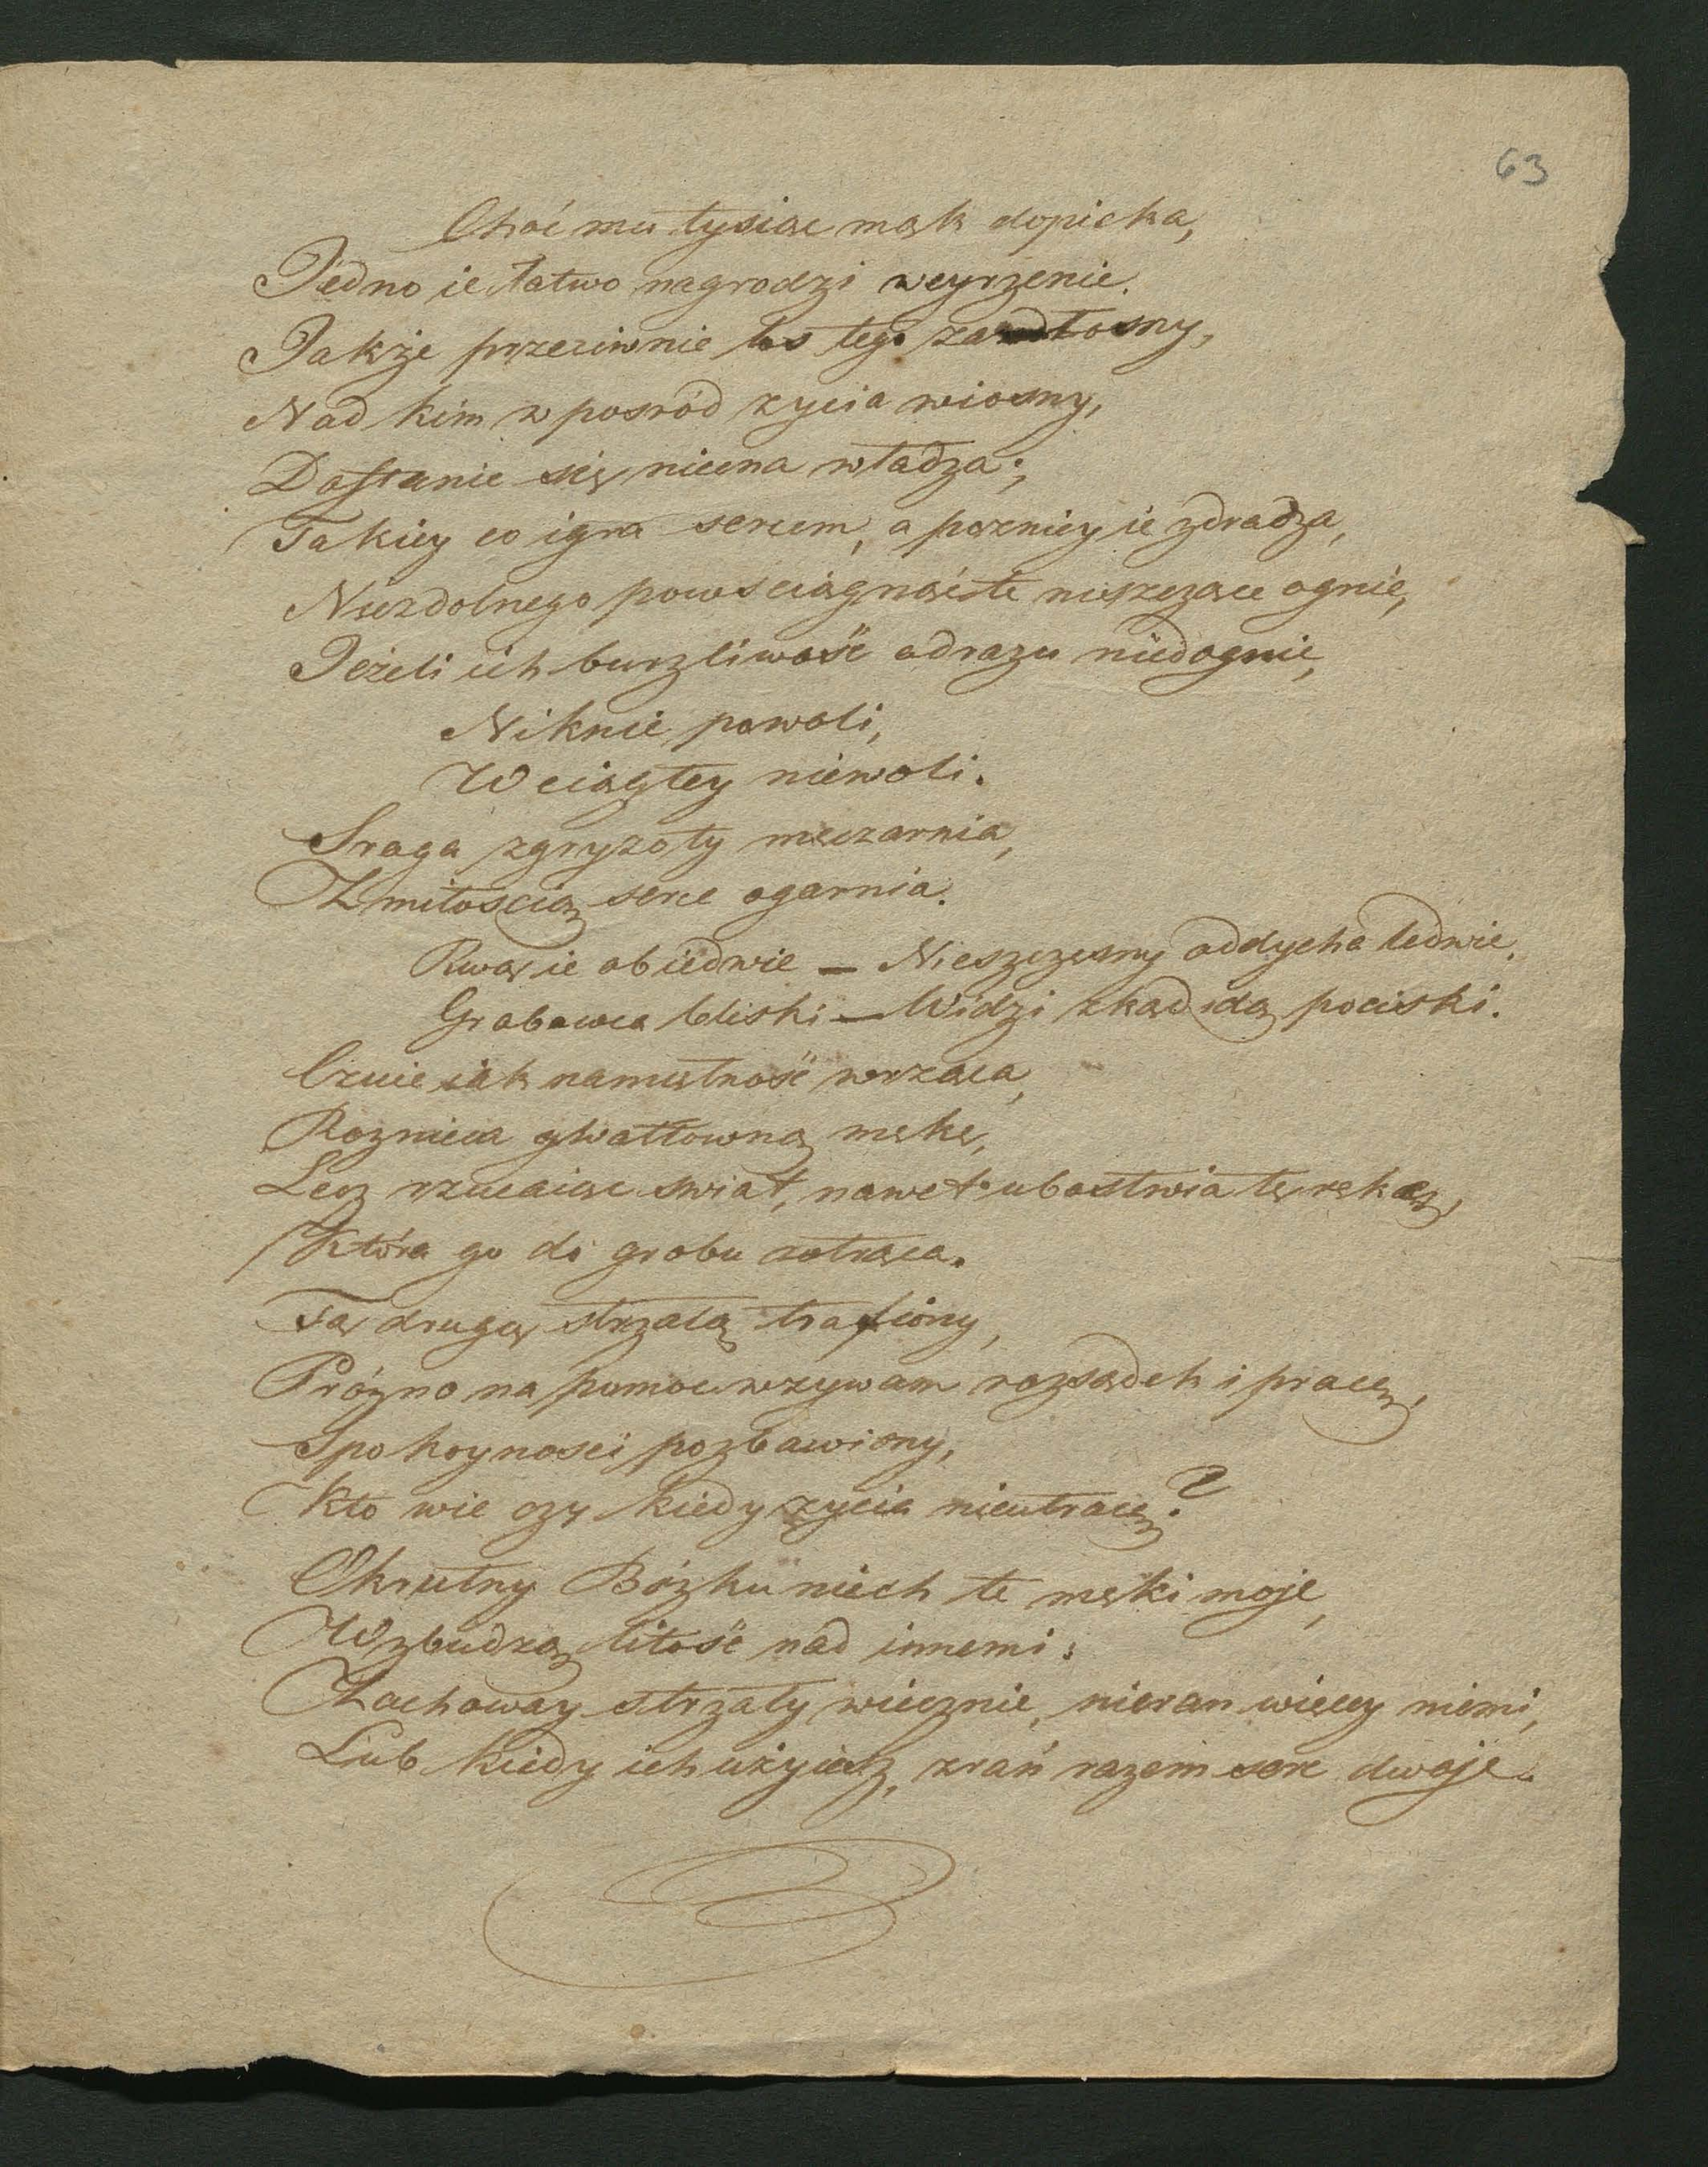 63
Choć mu tysiąc mąk dopieka,
Jedno ie łatwo nagrodzi weyrzenie.
Jakże przeciwnie los tego zazdłosny,
Nad kim w pośród zycia wiosny,
Dostanie się niecna władza;
Takiey co igra sercem, a pozniey ie zdradza,
Niezdolnego powściągnąć te niszczące ognie,
Jeżeli ich burzliwość odrazu niedognie,
Niknie powoli,
W ciągłey niewoli.
Sroga zgryzoty męczarnia,
Z miłoscią serce ogarnia.
Rwą ie obiedwie — Nieszczęsny oddycha ledwie,
Grobowca bliski — Widzi zkąd idą pociski.
Czuie iak namiętność wrząca,
Roznieca gwałtowną mękę,
Lecz rzucaiąc swiat, nawet ubostwia tę rękę,
Która go do grobu zotrąca.
Tą drugą strzałą trafiony,
Prózno na pomoc wzywam rozsądek i pracę,
Spokoyności pozbawiony,
Kto wie czy kiedy zycia nieutracę?
Okrutny Bózku niech te męki moje,
Wzbudzą litość nad innemi:
Zachoway strzały wiecznie, nieran więcey niemi,
Lub kiedy ich użyiesz, zrań razem serc dwoje.